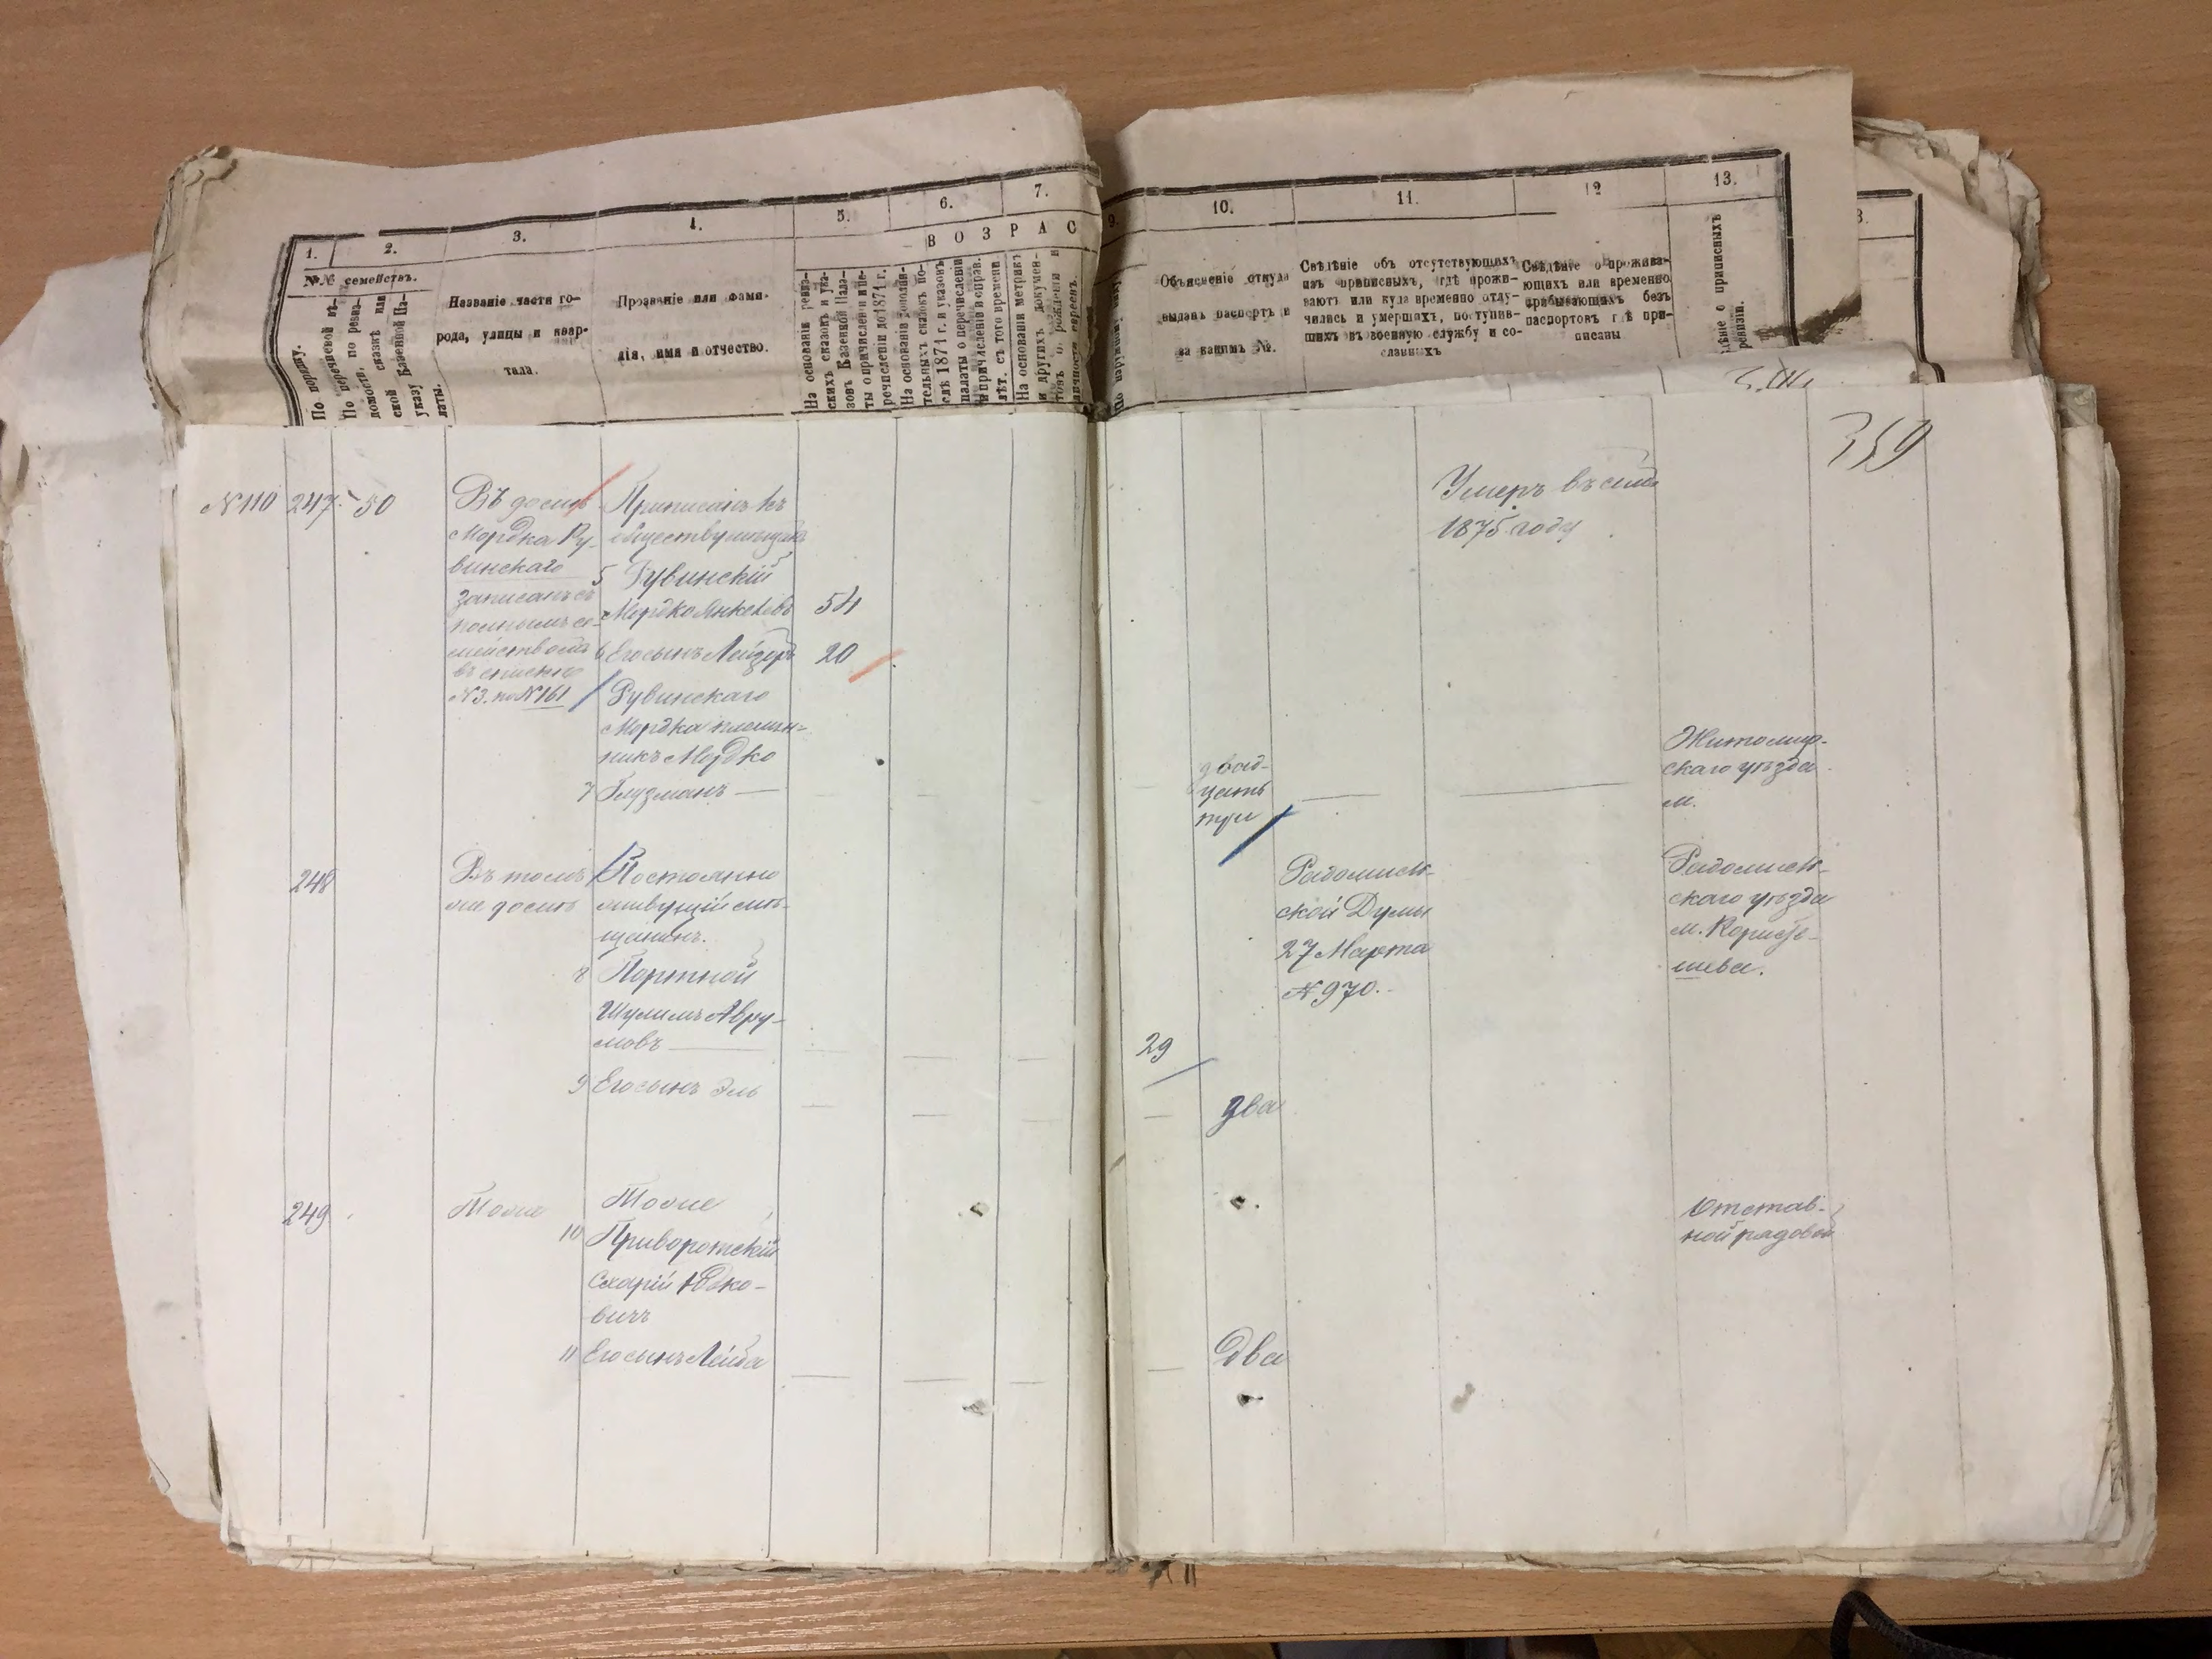 1.
2.
3.
4.
5.
6.
7.
№№ семействъ.
По порядку.
По перечневой вѣ-
домости, по ревиз-
ской сказкѣ или
указу Казенной Па-
латы.
Названіе части го-
рода, улицы и квар-
тала.
Прозваніе или фами-
лія, имя и отчество.
ВОЗРАС
На основаніи ревиз-
скихъ сказокъ и ука-
зовъ Казенной Пала-
ты о причисленіи и пе-
речисленіи до 1871 г.
На основаніи дополни-
тельныхъ сказокъ по-
слѣ 1871 г. и указовъ
палаты о перечисленіи
и причисленіи и справ.
лѣт. съ того времени
На основаніи метрикъ
и другихъ докумен-
товъ о рожденіи и
личности евреевъ.
9.
10.
11.
12
13.
3.
Объясненіе откуда
выданъ паспортъ и
за какимъ №.
Свѣдѣніе объ отсутствующихъ
изъ приписныхъ, гдѣ прожи-
ваютъ или куда временно отлу-
чились и умершихъ, поступив-
шихъ въ военную службу и со-
сланныхъ
Свѣдѣніе о прожива-
ющихъ или временно
прибывающихъ безъ
паспортовъ гдѣ при-
писаны
о приписныхъ
ревизіи.
359
N110 247 50
Въ домѣ
Мордка Ру-
винскаго
записанъ съ
полнымъ се-
мействомъ
въ списке
N3. по N161
Приписанъ къ
обществу мѣщанъ
5 Рувинскій
Мордко Янкелевъ 54
6 Его сынъ Лейзоръ 20
Рувинскаго
Мордка племян-
никъ Мордко
7 Глузманъ —
Умеръ въ семъ
1875 году
двад-
цать
три
Житомир-
скаго уѣзда
м.
248
Въ томъ
же домѣ
Постоянно
живущій мѣ-
щанинъ.
8 Портной
Шулимъ Авру-
мовъ —
29
9 Его сынъ Эль
два
Радомысль-
ской Думы
27 Марта
N 970.
Радомысль-
скаго уѣзда
м. Коросты-
шева.
249
Тоже
Тоже
10 Приворотскій
Схарій Юдко-
вичъ
11 Его сынъ Лейба
Два
Отстав-
ной рядовой